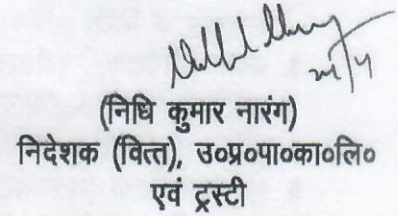 (निधि कुमार नारंग)
निदेशक (वित्त), उ०प्र०पा०का०लि०
एवं ट्रस्टी